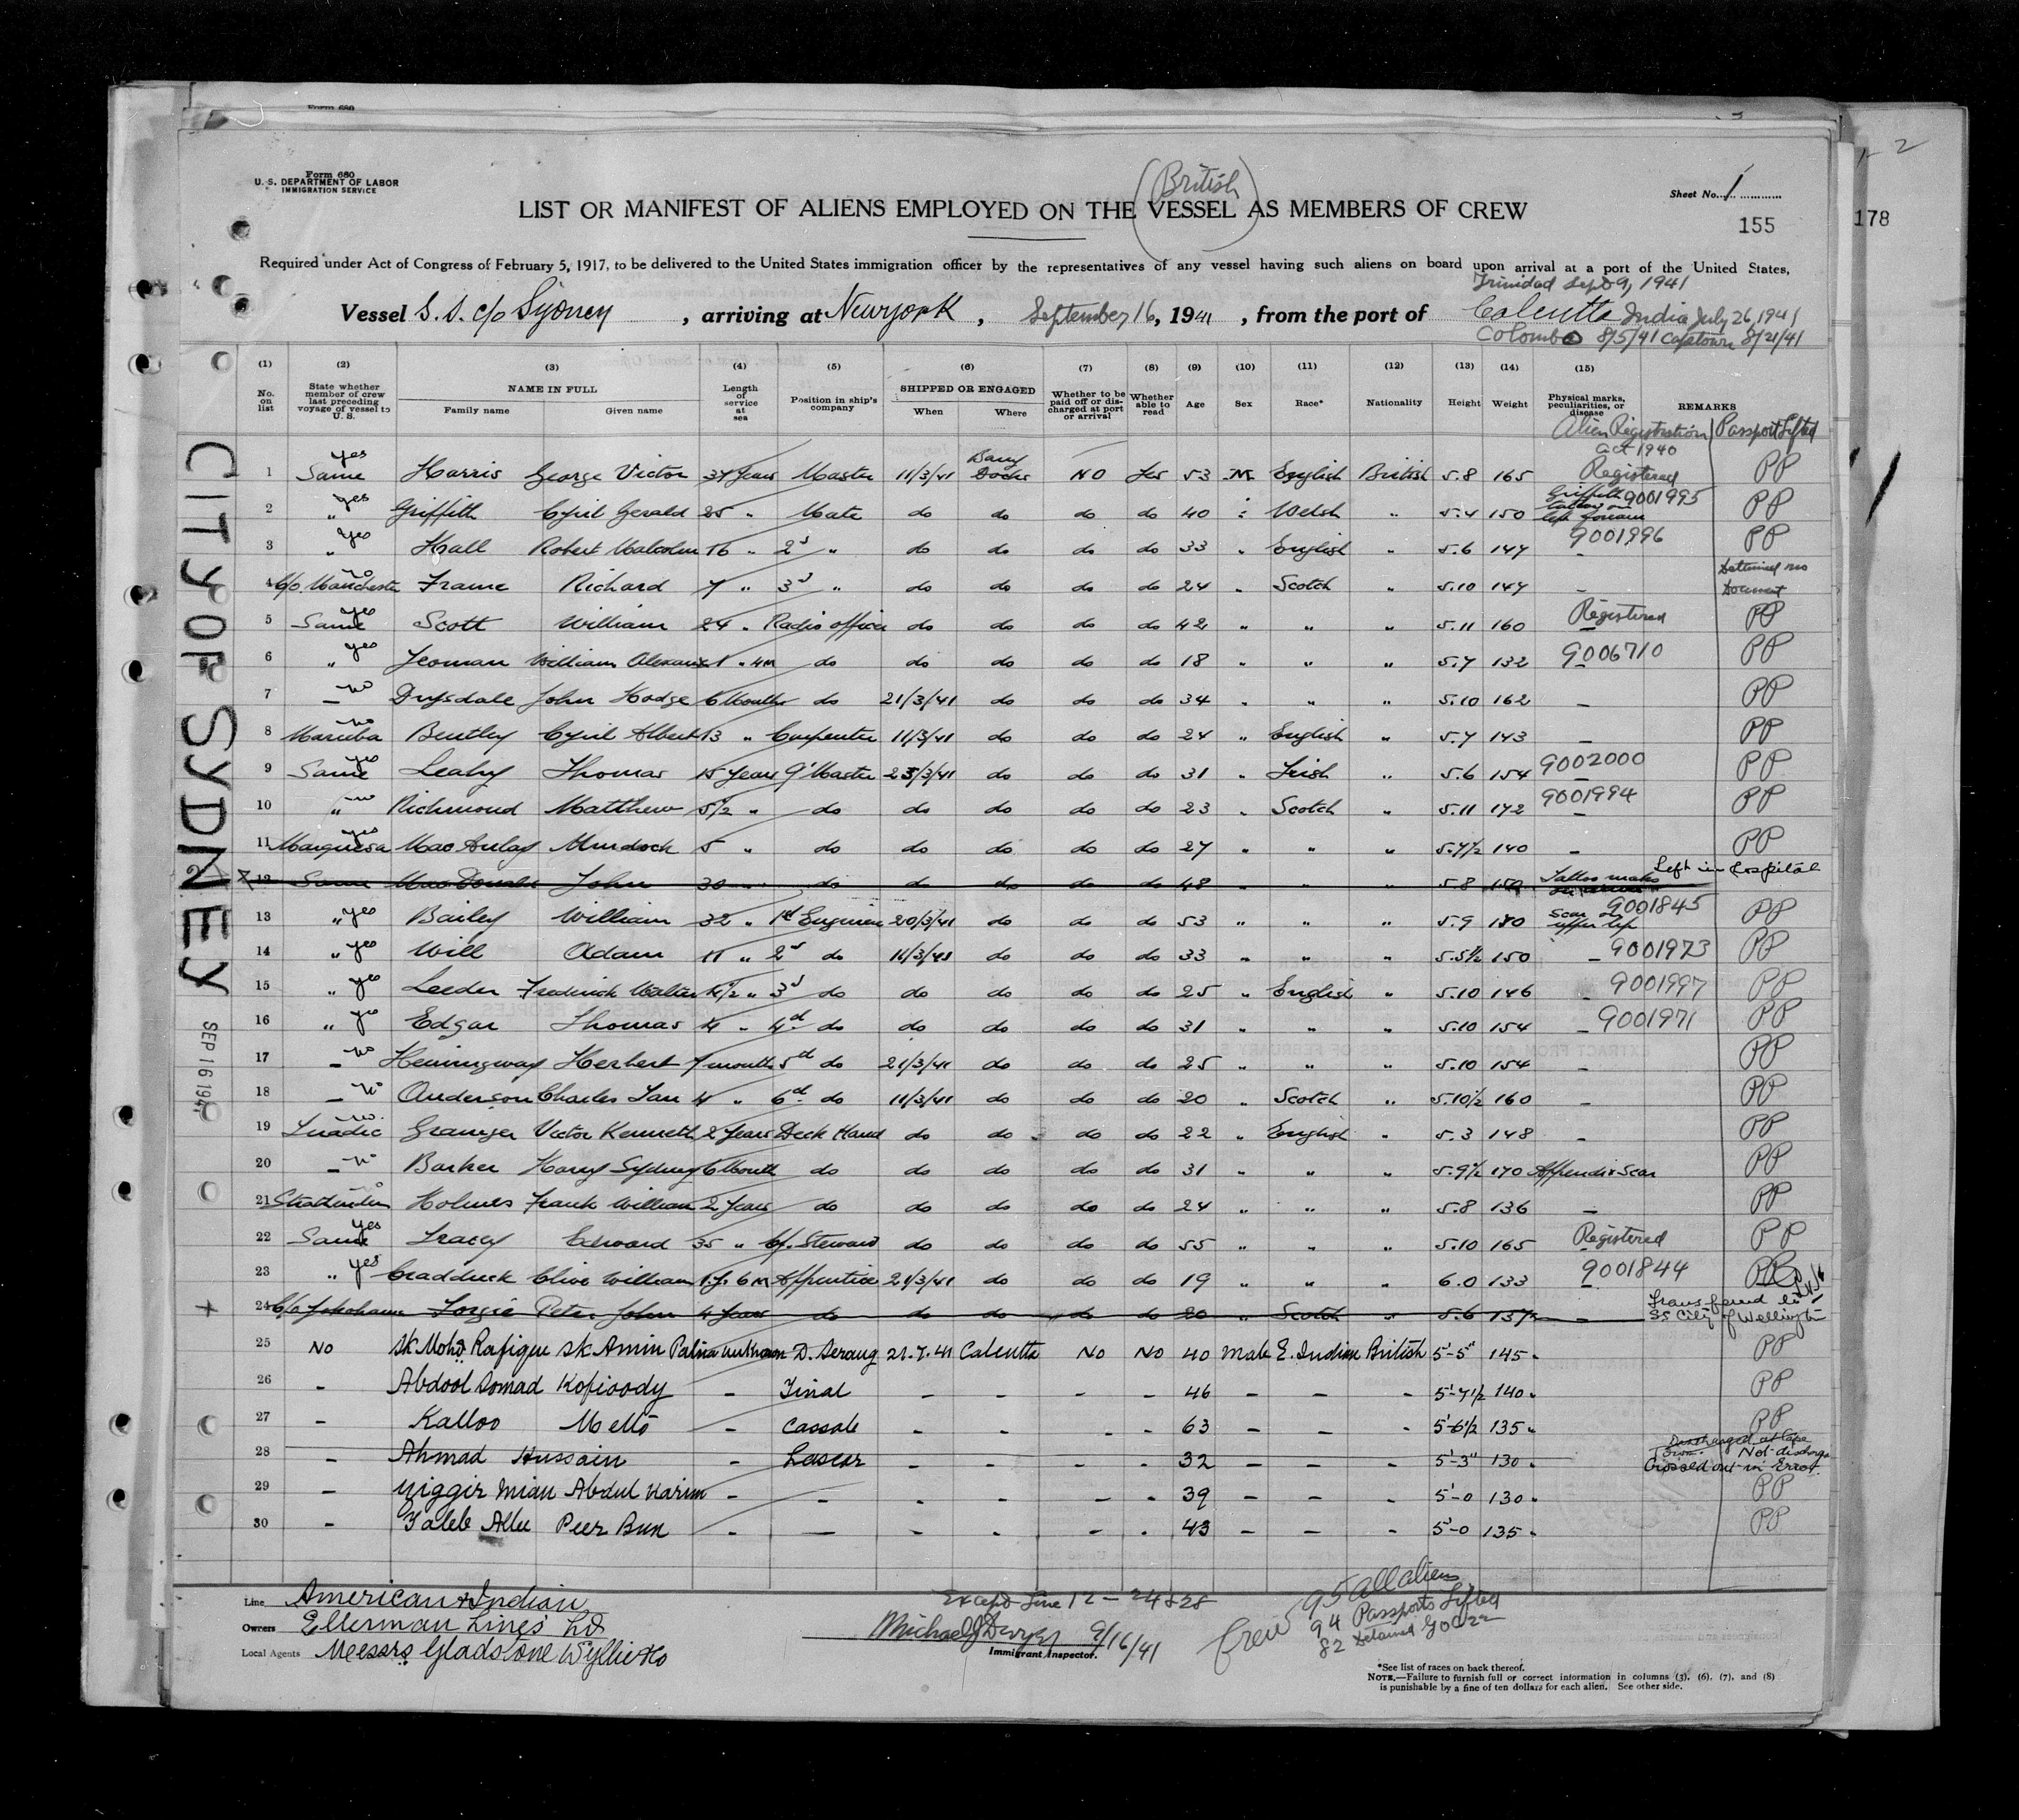 Form 680
Form 680
U. S. DEPARTMENT OF LABOR
IMMIGRATION SERVICE
(British)
Sheet No. 1
LIST OR MANIFEST OF ALIENS EMPLOYED ON THE VESSEL AS MEMBERS OF CREW
155
178
2
Required under Act of Congress of February 5, 1917, to be delivered to the United States immigration officer by the representatives of any vessel having such aliens on board upon arrival at a port of the United States,
Trinidad Sept 9, 1941
Vessel S. S. c/o Sydney, arriving at Newyork, September 16, 1941, from the port of Calcutta India July 26, 1941
Colombo 8/5/41 Capetown 8/21/41
(1) (2) (3) (4) (5) (6) (7) (8) (9) (10) (11) (12) (13) (14) (15)
No. on list State whether member of crew last preceding voyage of vessel to U. S. NAME IN FULL Family name Given name Length of service at sea Position in ship's company SHIPPED OR ENGAGED When Where Whether to be paid off or discharged at port or arrival Whether able to read Age Sex Race* Nationality Height Weight Physical marks, peculiarities, or disease REMARKS
Alien Registration Act 1940 Passport Lifted
1 yes Same Harris George Victor 37 Years Master 11/3/41 Barry Docks NO Yes 53 M. English British 5.8 165 Registered PP
2 " yes Griffith Cyril Gerald 25 " Mate do do do do 40 " Welsh " 5.4 150 9001995 tattoo on left forearm PP
3 " yes Hall Robert Malcolm 16 " 2d " do do do do 33 " English " 5.6 147 9001996 PP
4 no c/o Manchester Frame Richard 7 " 3d " do do do do 24 " Scotch " 5.10 147 - Detained no Document
5 yes Same Scott William 24 " Radio officer do do do do 42 " " " 5.11 160 Registered PP
6 " yes Yeoman William 1 " 4m do do do do do 18 " " " 5.7 132 9006710 PP
7 - no Drysdale John Hodge 6 Months do 21/3/41 do do do 34 " " " 5.10 162 - PP
8 no Bentley Cyril Albert 13 " Carpenter 11/3/41 do do do 24 " English " 5.7 143 - PP
9 yes Same Leahy Thomas 15 Years Q'Master 23/3/41 do do do 31 " Irish " 5.6 154 9002000 PP
10 " no Richmond Matthew 5½ " do do do do do 23 " Scotch " 5.11 172 9001994 PP
11 yes MacAulay Murdock 5 " do do do do do 27 " " " 5.7½ 140 - PP
12 Same MacDonald John 30 " do do do do do 48 " " " 5.8 Tattoo marks Left in Hospital
13 " yes Bailey William 32 " 1st Engineer 20/3/41 do do do 53 " " " 5.9 180 9001845 Scar on upper lip PP
14 " yes Will Adam " 2d do 11/3/41 do do do 33 " " " 5.5½ 150 - 9001973 PP
15 " yes Leeder Frederick Walter 4½ " 3d do do do do do 25 " English " 5.10 146 - 9001997 PP
16 " yes Edgar Thomas 4 " 4th do do do do do 31 " " " 5.10 154 - 9001971 PP
17 - no Hemingway Herbert 7 months 5th do 21/3/41 do do do 25 " " " 5.10 154 - PP
18 - no Anderson Charles Ian 4 " 6th do 11/3/41 do do do 20 " Scotch " 5.10½ 160 - PP
19 no Grainger Victor Kenneth 2 Years Deck Hand do do do do 22 " English " 5.3 148 - PP
20 - no Barker Harry Sydney 6 Month do do do do do 31 " " " 5.9½ 170 Appendix Scar PP
21 no Holmes Frank William 2 Years do do do do do 24 " " " 5.8 136 - PP
22 yes Same Tracey Edward 35 " Cf. Steward do do do do 55 " " " 5.10 165 Registered PP
23 " yes Cradduck Clive William 1 y. 6m Apprentice 21/3/41 do do do 19 " " " 6.0 133 9001844 PP
+ 24 c/o Yokohama Peter John 4 Years do do do do do 20 " Scotch " 5.6 137 - Transferred to SS City of Wellington
25 NO Sk Mohd Rafique Sk Amin Patna unknown D. Serang 21.7.41 Calcutta NO NO 40 male E. Indian British 5'-5" 145. PP
26 - Abdool Somad Kopioody - Tinal - - - - 46 - - - 5'-7½ 140. PP
27 - Kalloo - Cassab - - - - 63 - - - 5'-6½ 135. PP
28 - Ahmad Hussain - Lascar - - - - 32 - - - 5'-3" 130. Discharged at Cape Town. Not discharged Crossed out in Error.
29 - Abdul Karim - - - - - - 39 - - - 5'-0 130. PP
30 - Peer Bux - - - - - - 43 - - - 5'-0 135. PP
CITY OF SYDNEY
SEP 16 194
Line American & Indian
Owners Ellerman Lines Ld
Local Agents Messrs Gladstone Wyllie & Co
Except Line 12 - 24 & 28
Michael J Dwyer 9/16/41
Immigrant Inspector.
Crew
95 all aliens
94 Passports Lifted
82 Detained
*See list of races on back thereof.
NOTE.—Failure to furnish full or correct information in columns (3), (6), (7), and (8)
is punishable by a fine of ten dollars for each alien. See other side.